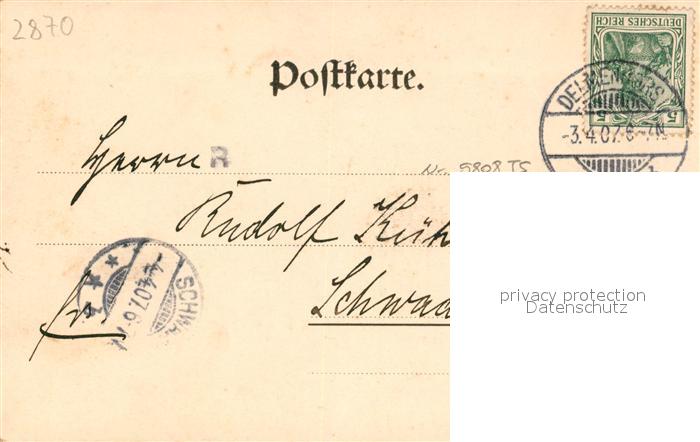 2870
DEUTSCHES REICH
5 5
Postkarte.
-3.4.07.6-7N
Herrn R
Nr. 5808 TS
Rudolf Küh
Schwa
SCHW
4.07.6-7
privacy protection
Datenschutz